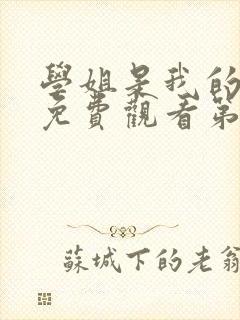 學姐是我的
免費觀看第
蘇城下的老翁